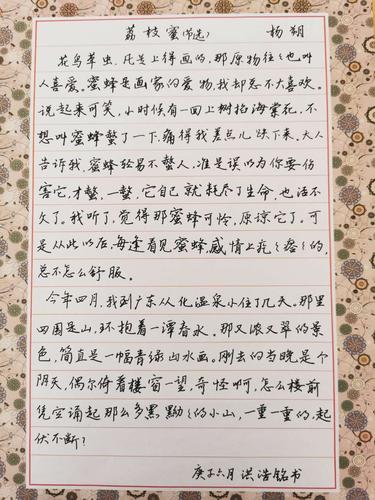 荔枝蜜(节选) 杨朔
花鸟草虫,凡是上得画的,那原物往往也叫
人喜爱。蜜蜂是画家的爱物,我却总不大喜欢。
说起来可笑,小时候有一回上树掐海棠花,不
想叫蜜蜂螫了一下,痛得我差点儿跌下来。大人
告诉我,蜜蜂轻易不螫人,准是误以为你要伤
害它,才螫,一螫,它自己就耗尽了生命,也活不
久了。我听了,觉得那蜜蜂可怜,原谅它了。可
是从此以后,每逢看见蜜蜂,感情上疙疙瘩瘩的,
总不怎么舒服。
今年四月,我到广东从化温泉小住了几天。那里
四围是山,环抱着一潭春水。那又浓又翠的景
色,简直是一幅青绿山水画。刚去的当晚是个
阴天,偶尔倚着楼窗一望,奇怪啊,怎么楼前
凭空涌起那么多黑黝黝的小山,一重一重的,起
伏不断?
庚子六月 洪浩铭书